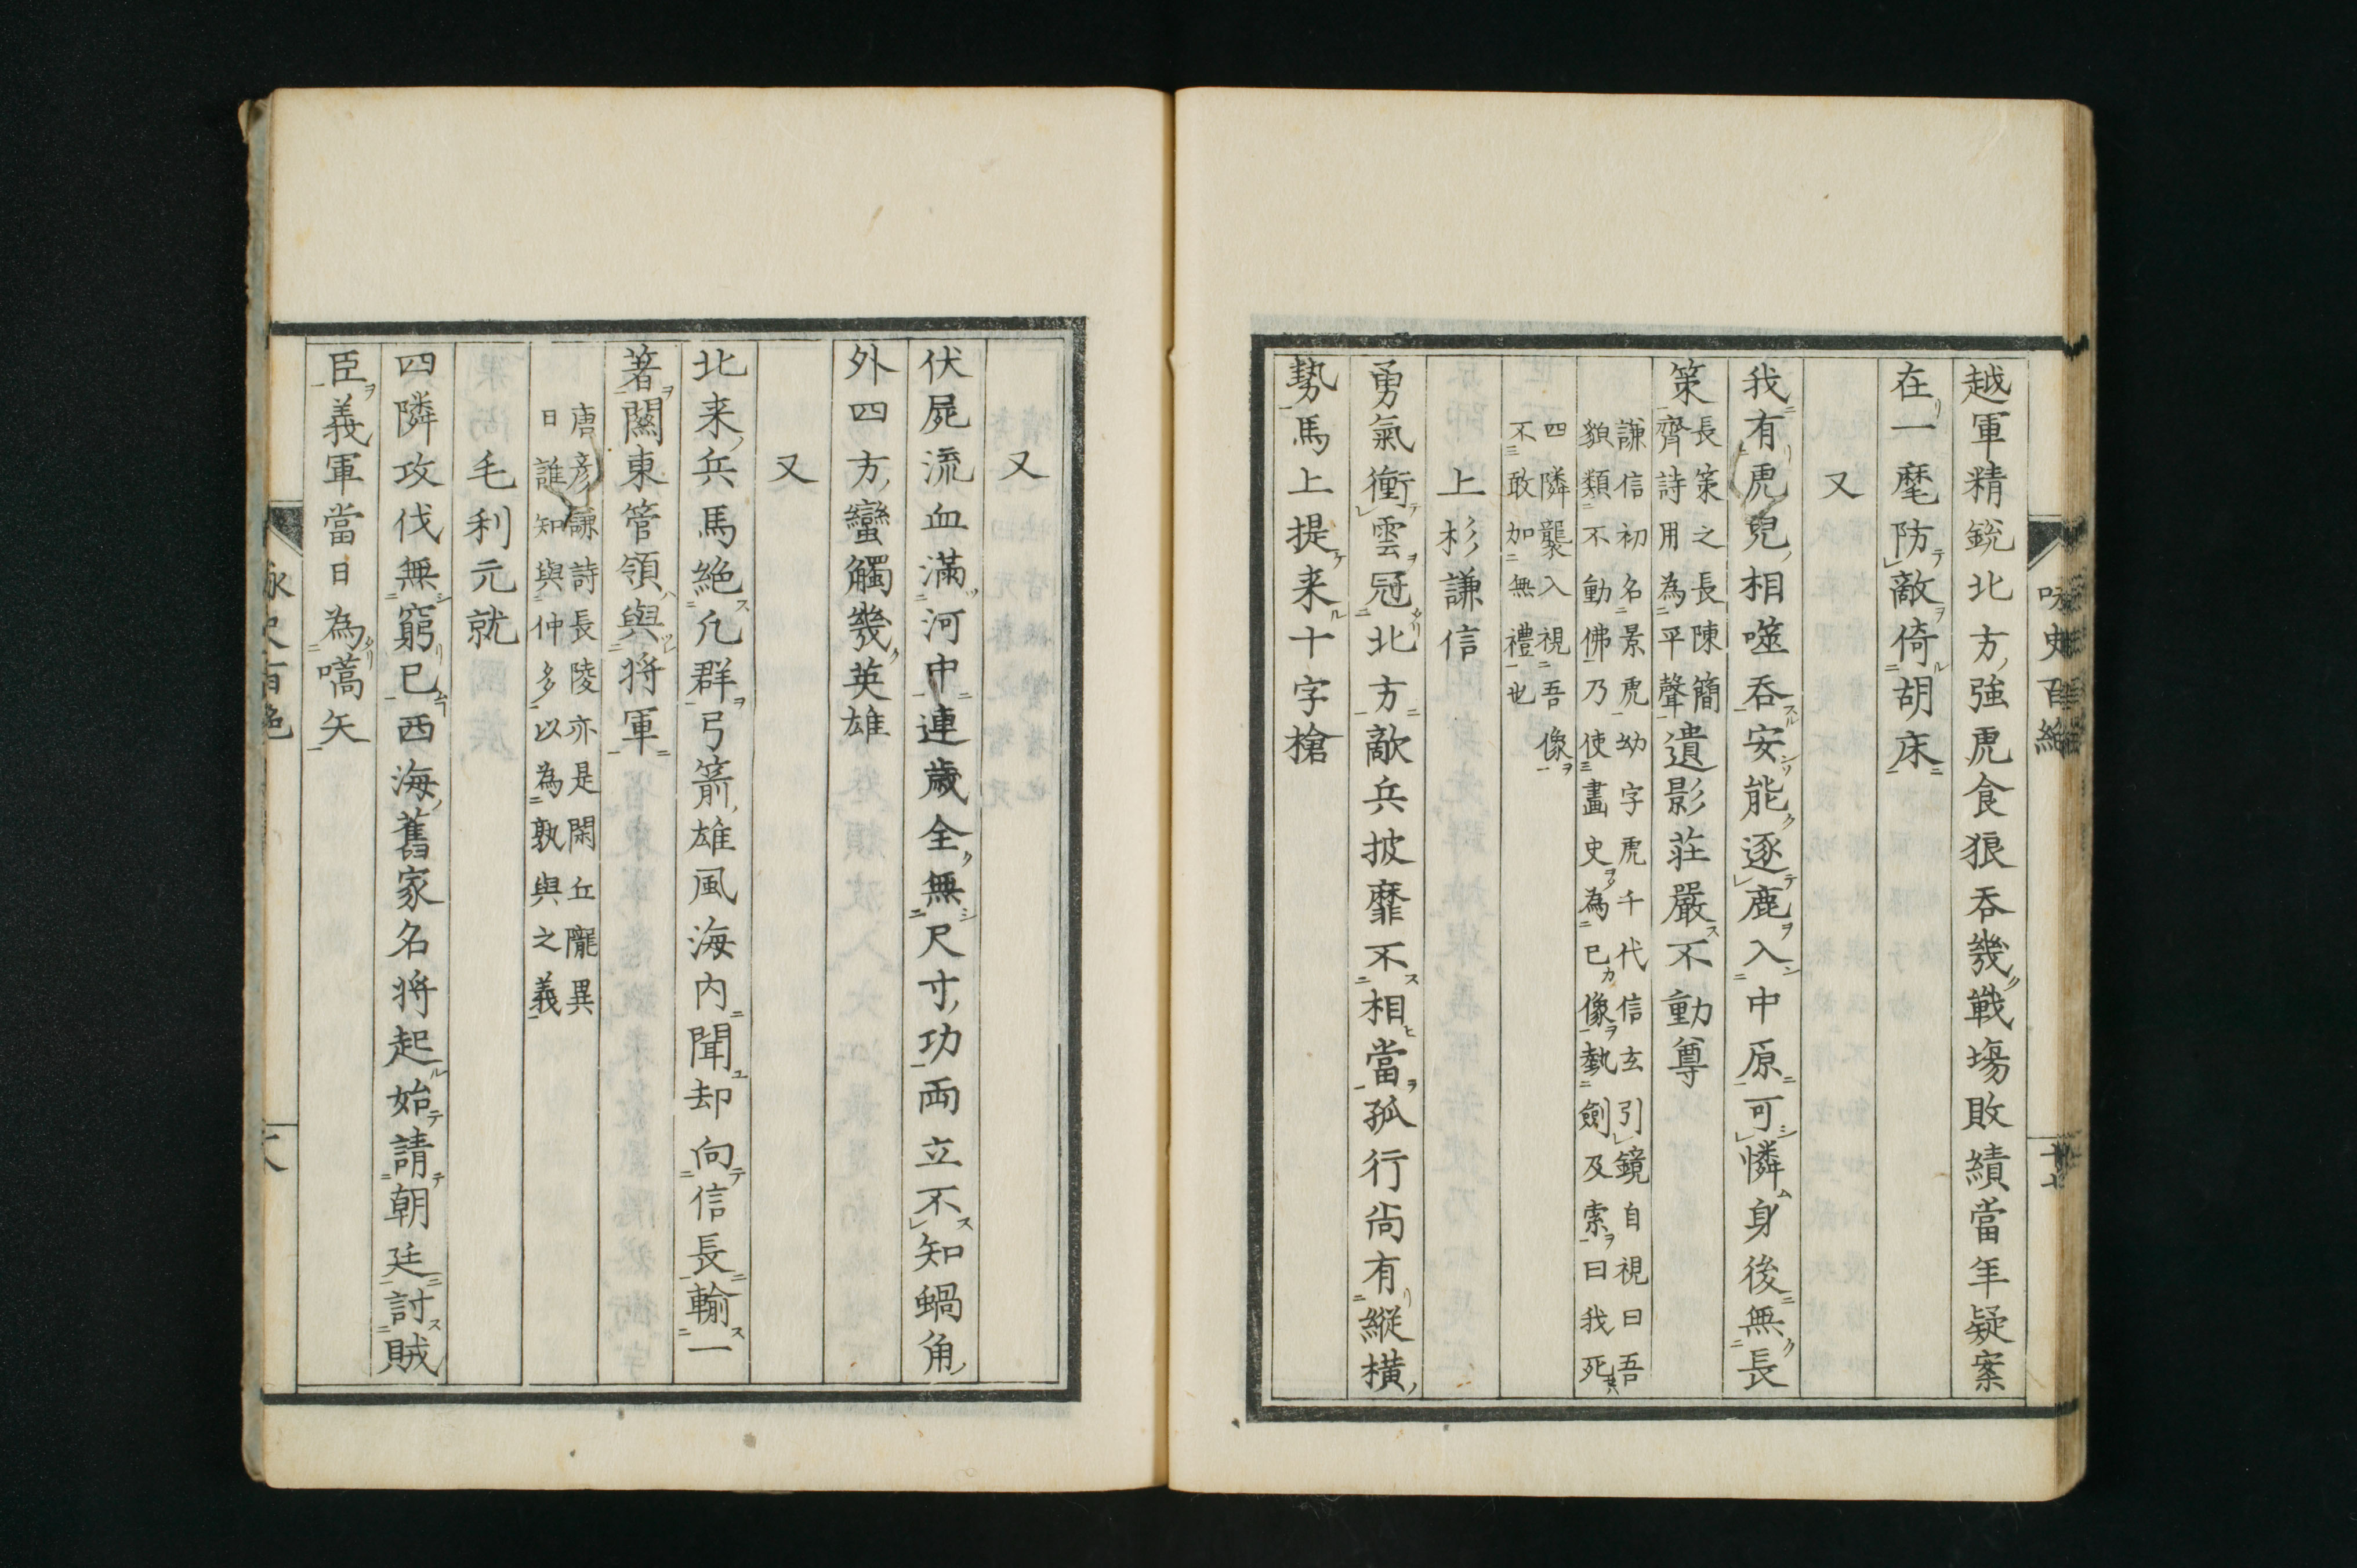 咏史百絶
十七
越軍精銳北方強虎食狼吞幾戰塲敗績當年疑案
在一麾防敵倚胡床
又
我有虎兒相噬吞安能逐鹿入中原可憐身後無長
策長策之長陳簡齊詩用為平聲遺影莊嚴不動尊
謙信初名景虎幼字虎千代信玄引鏡自視曰吾
貌類不動佛乃使畫史為已像執劍及索曰我死
四隣襲入視吾像
不敢加無禮也
上杉謙信
勇氣衝雲冠北方敵兵披靡不相當孤行尚有縱橫
勢馬上提来十字槍
又
伏屍流血滿河中連歲全無尺寸功両立不知蝸角
外四方蠻觸幾英雄
又
北来兵馬絶凡群弓箭雄風海内聞却向信長輸一
著關東管領與將軍
唐彦謙詩長陵亦是閑丘隴異
日誰知與仲多以為孰與之義
毛利元就
四隣攻伐無窮已西海舊家名将起始請朝廷討賊
臣義軍當日為嚆矢